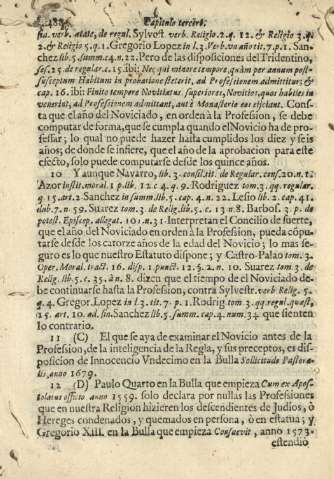 188
Capitulo tercero.
sta. verb. atate, de regul. Sylvest. verb. Religio. 2. q. 12. & Religio 3. q.
2. & Religio 5. q. 1. Gregorio Lopez in l. 3. Verb. vn año tit. 7. p. 1. San-
chez lib. 5. summ. c. 4. n. 22. Pero de las disposiciones del Tridentino,
ses. 25. de regular. c. 15. ibi: Nec qui minore tempore, quàm per annum post-
susceptum Habitum in probatione steterit, ad Professionem admittatur; &
cap. 16. ibi: Finito tempore Novitiatus superiores, Novitios, quos habiles in
venerint, ad Professionem admittant, aut è Monasterio eos eijciant. Cons-
ta que el año del Noviciado, en orden à la Profession, se debe
computar de forma, que se cumpla quando el Novicio ha de pro-
fessar; lo qual no puede hazer hasta cumplidos los diez y seis
años; de donde se infiere, que el año de la aprobacion para este
efecto, solo puede computarse desde los quince años.
10 Y aunque Navarro, lib. 3. consil. tit. de Regular. cons. 20. n. 1.
Azor Instit. moral. 1. p. lib. 12. c. 4. q. 9. Rodriguez tom. 3. qq. regular.
q. 15. art. 2. Sanchez in summ. lib. 5. cap. 4. n. 22. Lesio lib. 2. cap. 41.
dub. 7. n. 59. Suarez tom. 3. de Relig. lib. 5. c. 13. n 8. Barbos. 3. p. de
potest. Episcop. allegat. 10. n. 3. Interpretan el Concilio de suerte,
que el año del Noviciado en orden à la Profession, pueda cõpu-
tarse desde los catorze años de la edad del Novicio; lo mas se-
guro es lo que nuestro Estatuto dispone; y Castro-Palao tom. 3.
Oper. Moral. tract. 16. disp. 1. punct. 12. §. 2. n. 10. Suarez tom. 3. de
Relig. lib. 5. c. 35. à n. 8. dizen que el tiempo de el Noviciado de-
be continuarse hasta la Profession, contra Sylvestr. verb Relig. 5.
q. 4. Gregor. Lopez in l 3. tit. 7. p. 1. Rodrig tom 3. qq. regul. quæst.
15. art. 10. ad. fin. Sanchez lib. 5. summ. cap. 4. num. 34 que sienten
lo contrario.
11 (C) El que se aya de examinar el Novicio antes de la
Profession, de la inteligencia de la Regla, y sus preceptos, es dis-
posicion de Innocencio Vndecimo en la Bulla Sollicitudo Pastora-
lis, anno 1679.
12 (D) Paulo Quarto en la Bulla que empieza Cum ex Apos-
tolatus officio anno 1559. solo declara por nullas las Professiones
que en nuestra Religion hizieren los descendientes de Judios, ò
Hereges condenados, y quemados en persona, ò en estatua; y
Gregorio XIII. en la Bulla que empieza Consuevit, anno 1573.
estendiò